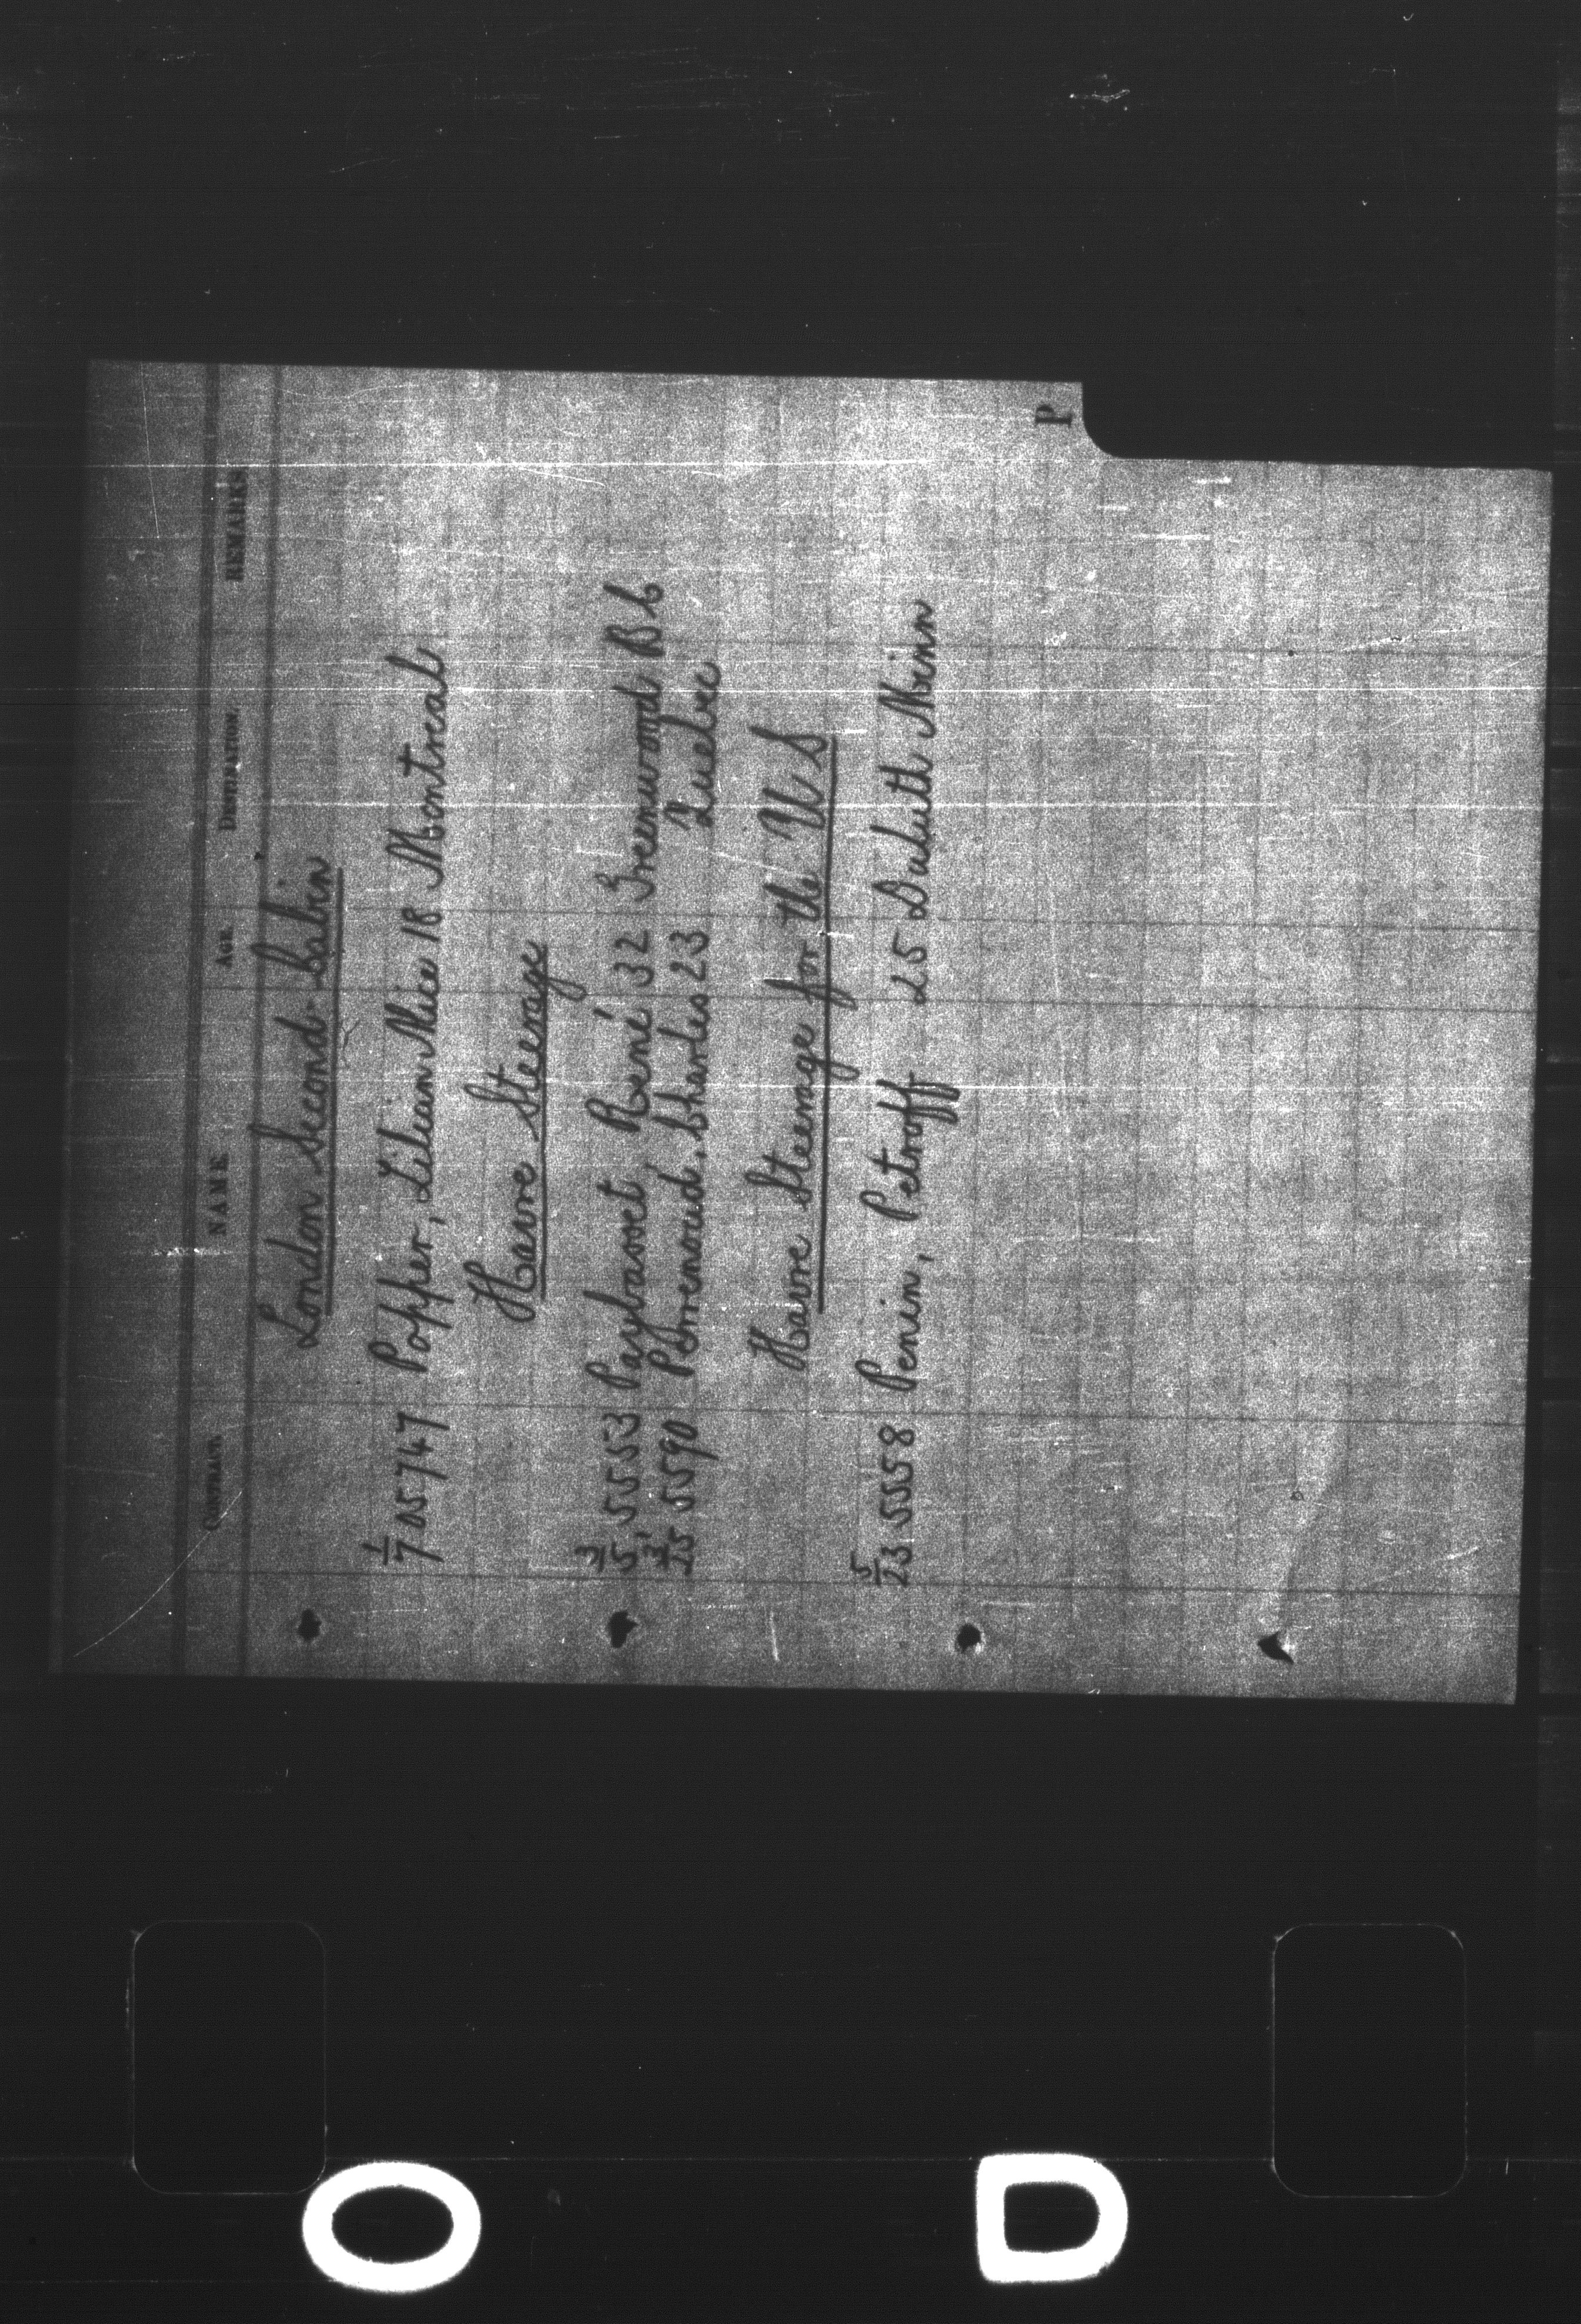 P
CONTRACT. NAME AGE. DESTINATION. REMARKS
London Second Cabin
1/7 05747 Popper, Lilian Alice 18 Montreal
Havre Steerage
3/5, 5553 Paybasset René 32 Greenwood BC
25 5590 Perrenoud, Charles 23 Quebec
Havre Steerage for the US
5/23 5558 Penin, Petroff 25 Duluth Minn
O D